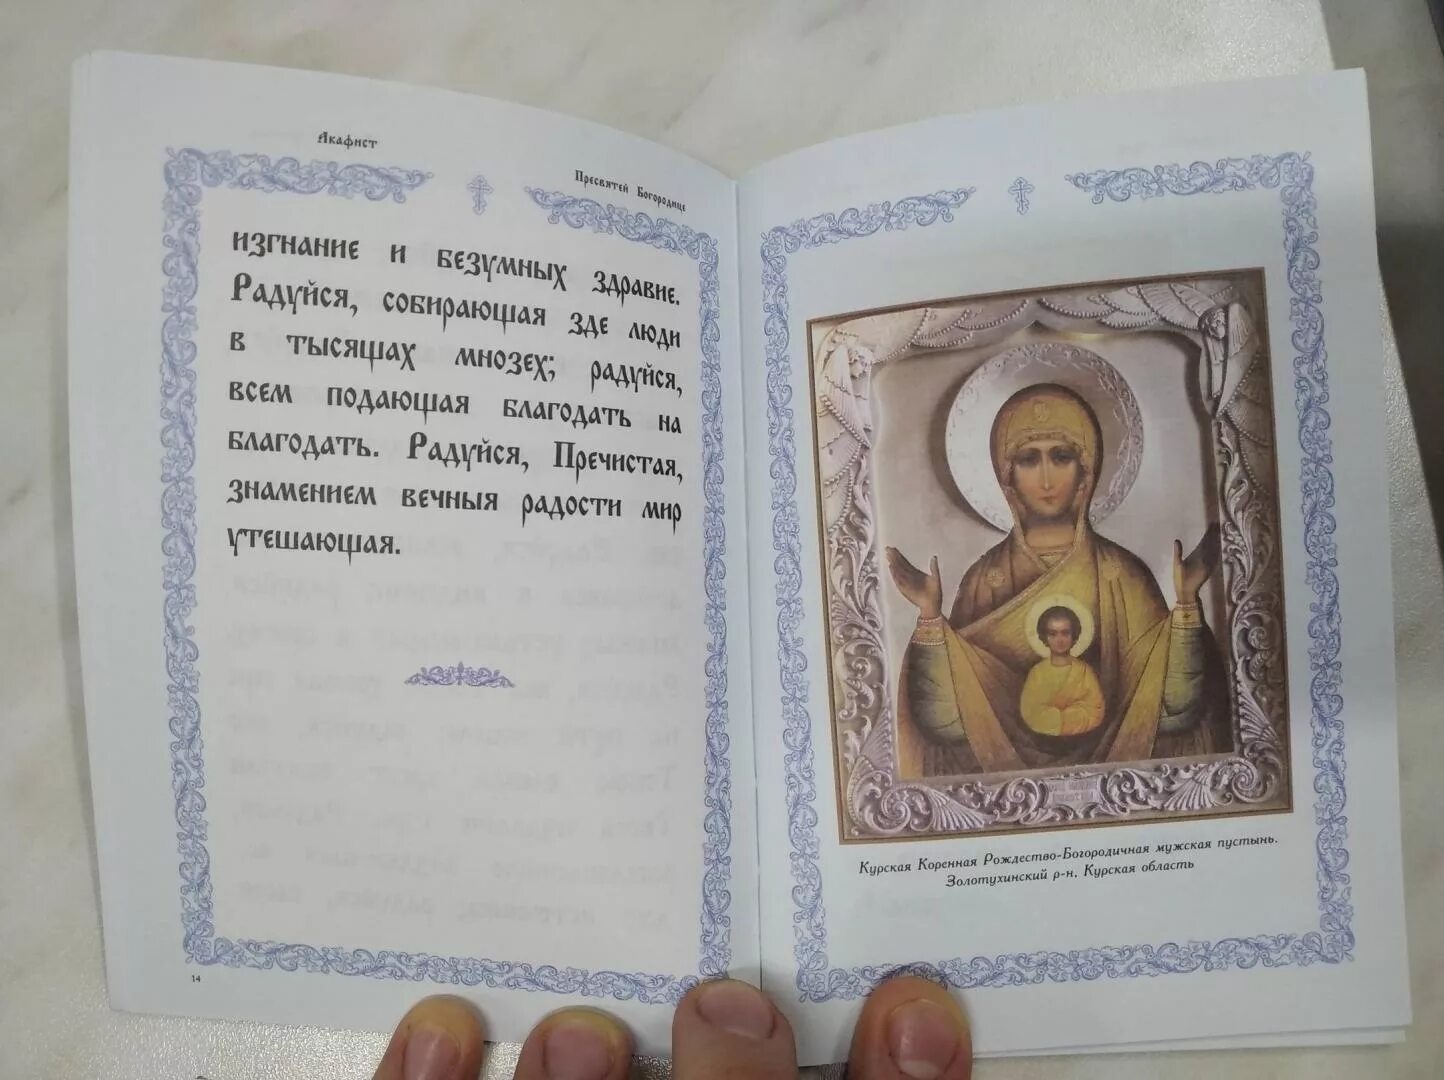 Акафист
Пресвятей Богородице
изгнание и безумных здравие.
Радуйся, собирающая зде люди
в тысящах мнозех; радуйся,
всем подающая благодать на
благодать. Радуйся, Пречистая,
знамением вечныя радости мир
утешающая.
14
Курская Коренная Рождество-Богородичная мужская пустынь.
Золотухинский р-н, Курская область